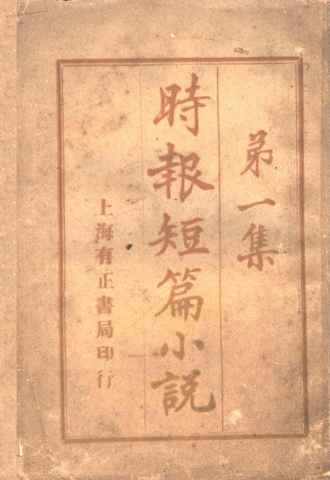 第一集
時報短篇小説
上海有正書局印行